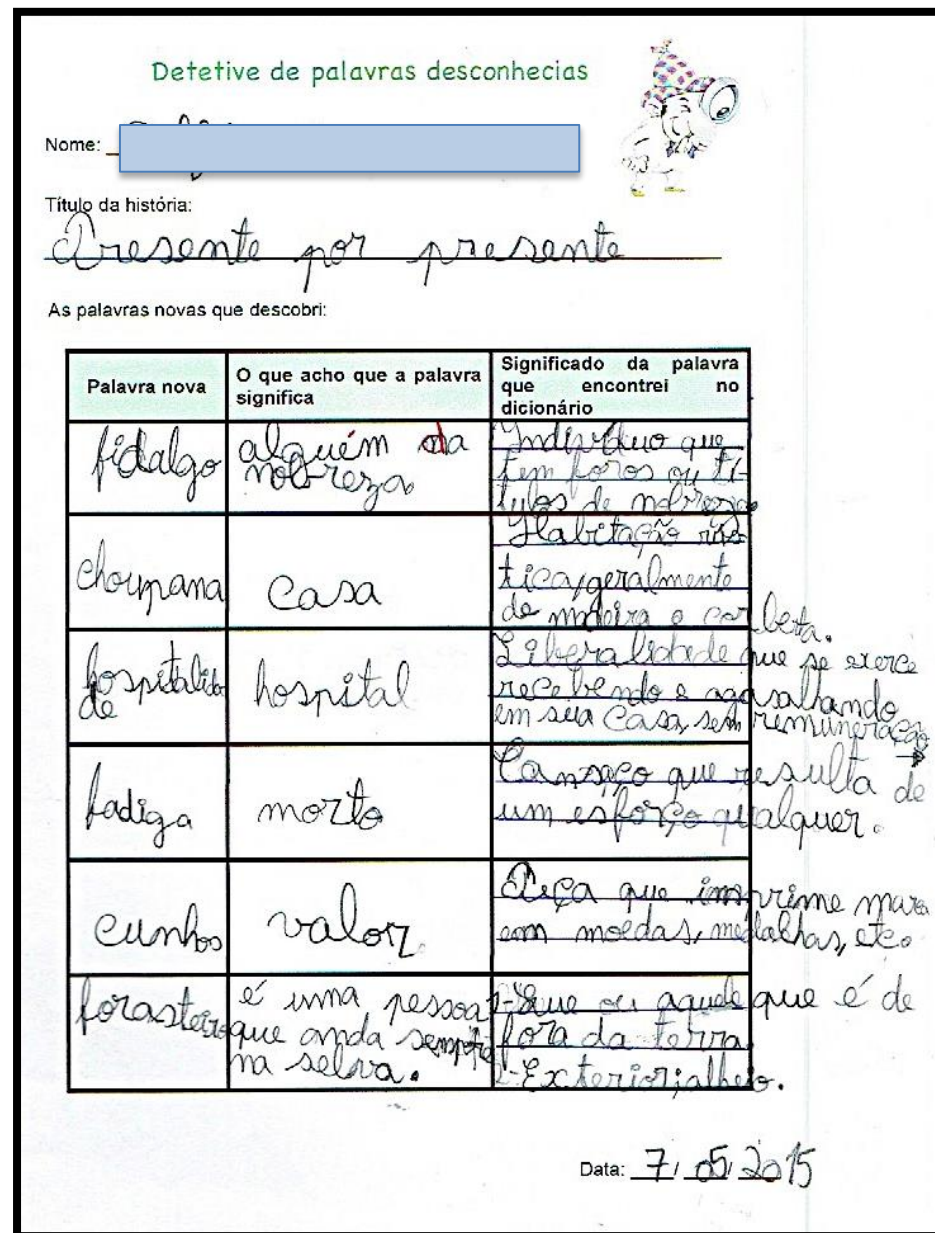 Detetive de palavras desconhecias
Nome:
Título da história:
Presente por presente
As palavras novas que descobri:
Palavra nova
O que acho que a palavra
significa
Significado da palavra
que encontrei no
dicionário
fidalgo
alguém da
nobreza
Indivíduo que
tem foros ou tí-
tulos de nobreza
choupana
casa
Habitação rús-
tica, geralmente
de madeira e
hospitalida
de
hospital
Liberalidade que se exerce
recebendo e agasalhando
em sua casa, sem remuneração
fadiga
morto
Cansaço que resulta de
um esforço qualquer.
cunhos
valor
Peça que imprime marca
em moedas, medalhas, etc.
forasteiro
é uma pessoa
que anda sempre
na selva.
1-Que ou aquele que é de
fora da terra
2-Exterior; alheio.
Data: 7/ 05/ 2015